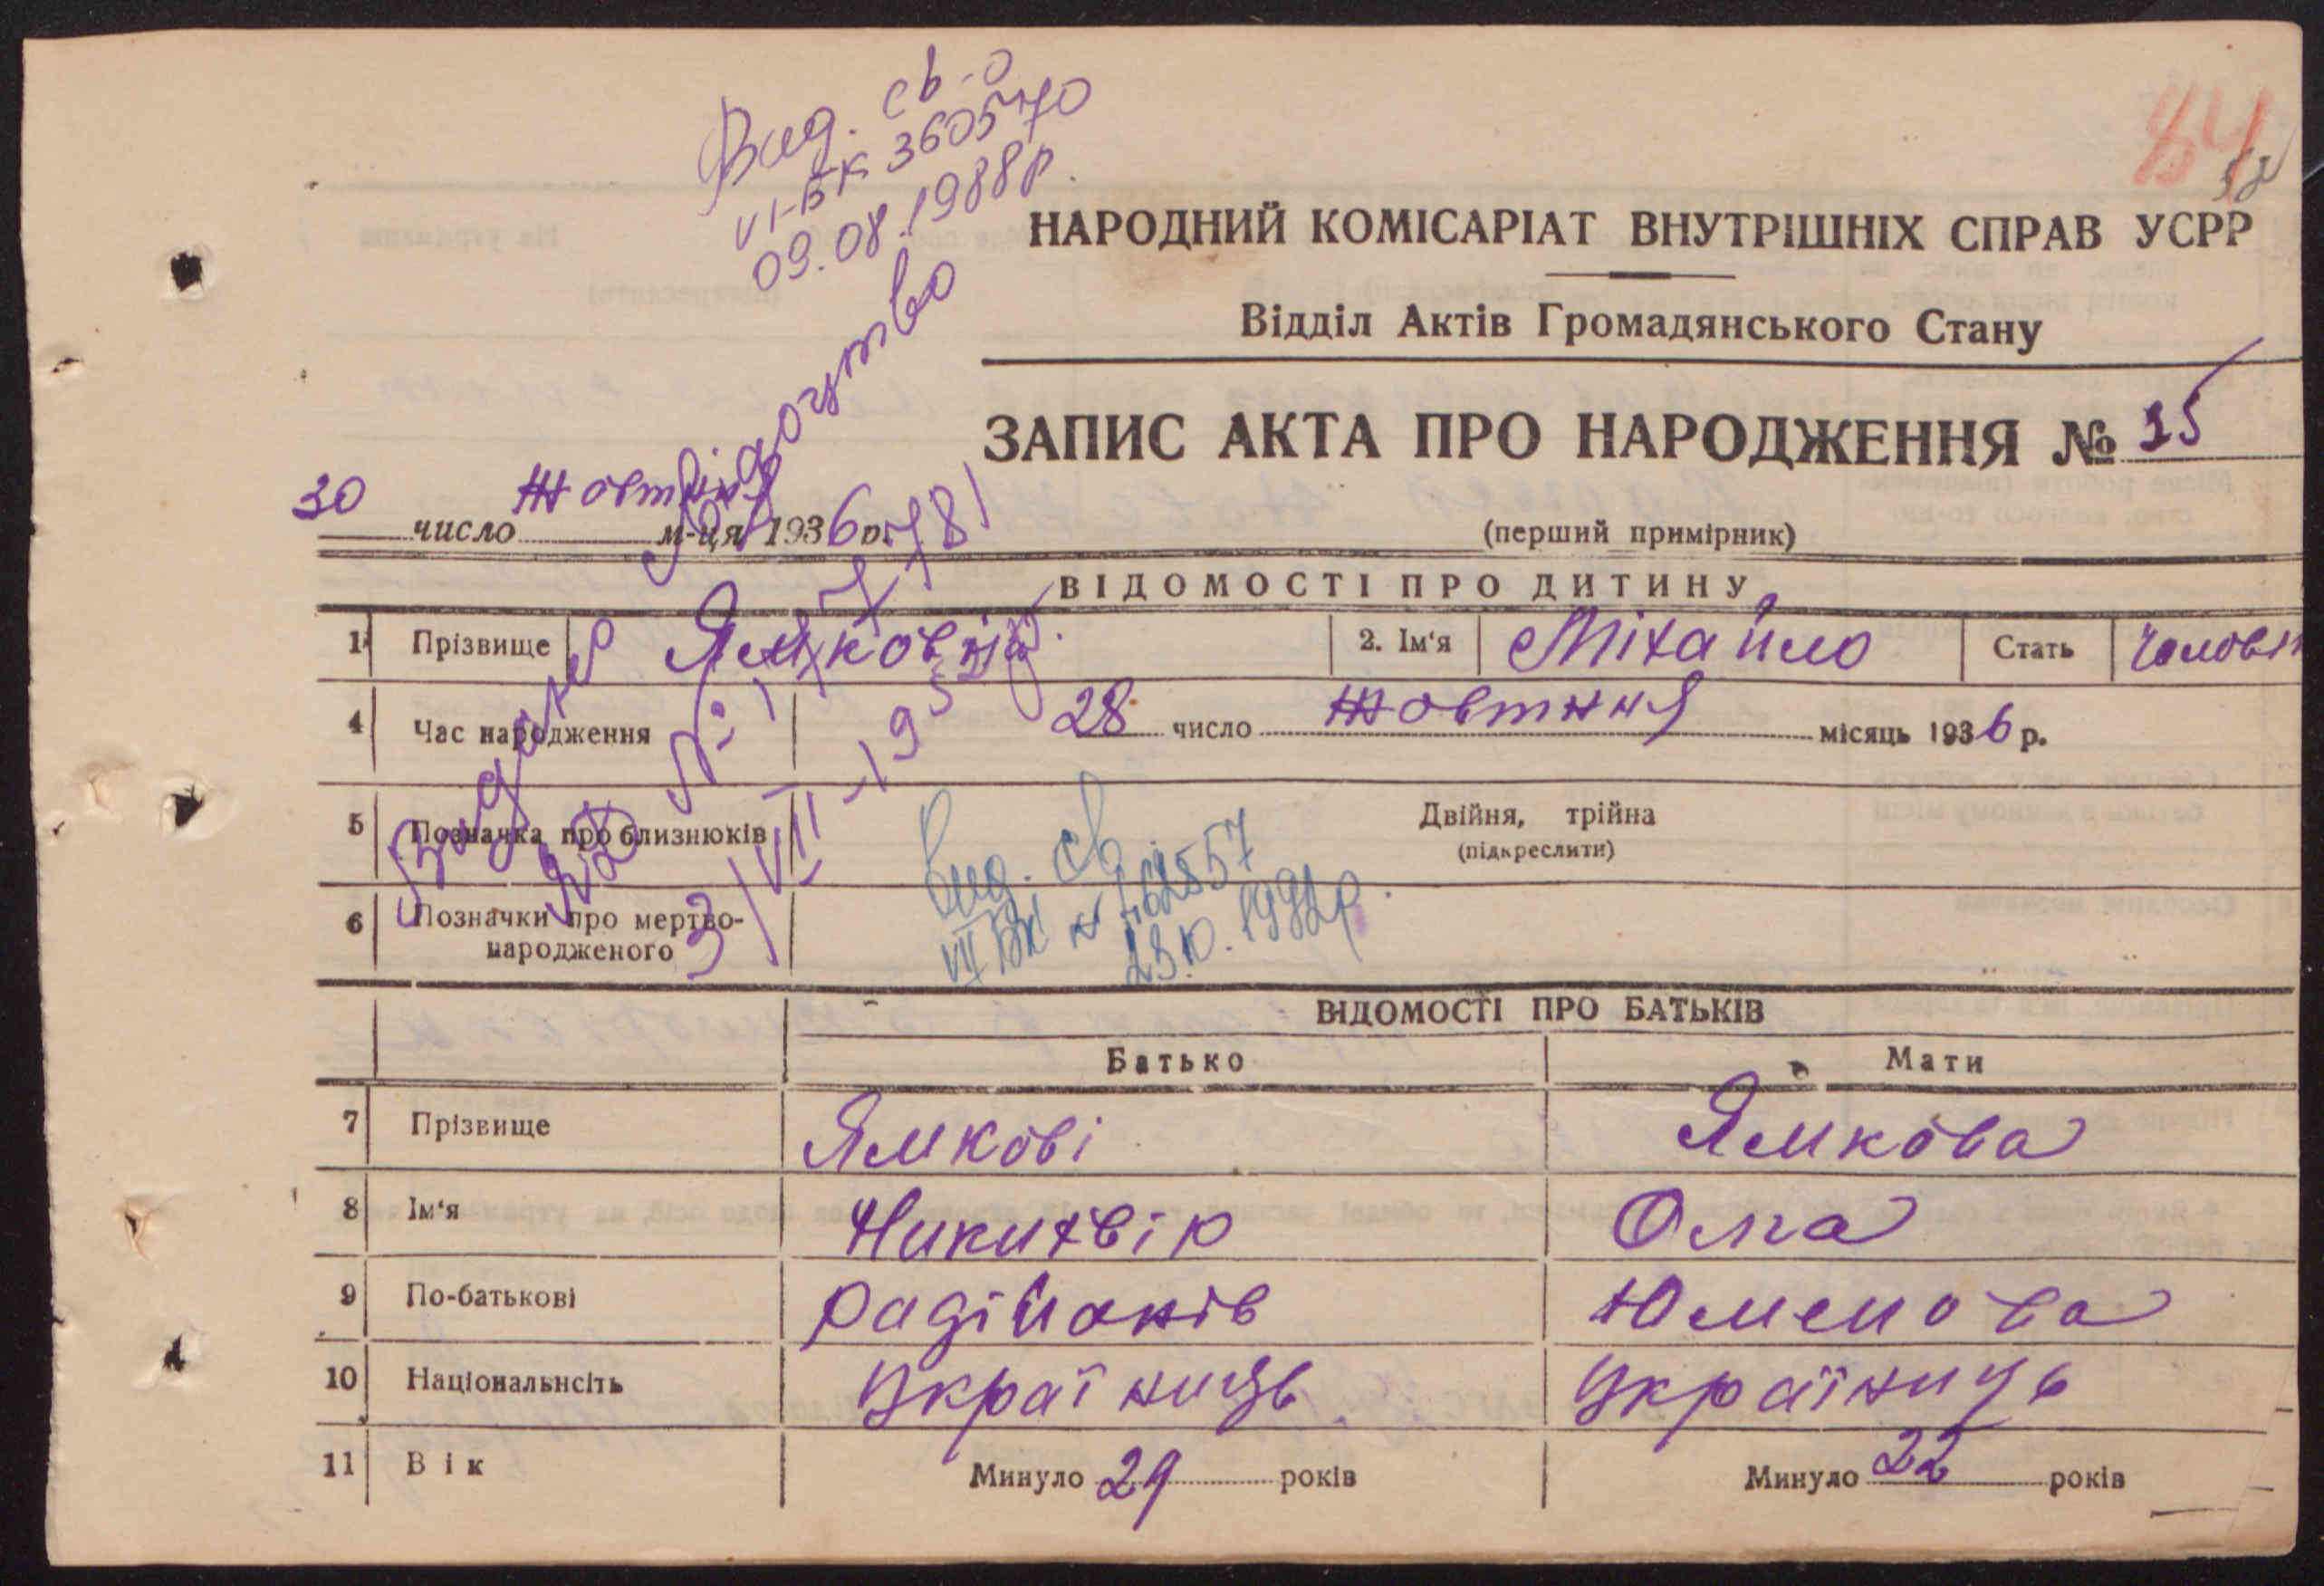 Вид. св-о
VI-БК 360570
09.08.1988р.
84
НАРОДНИЙ КОМІСАРІАТ ВНУТРІШНІХ СПРАВ УСРР
Відділ Актів Громадянського Стану
ЗАПИС АКТА ПРО НАРОДЖЕННЯ №
30 число жовтня м-ця 1936 р.
(перший примірник)
ВІДОМОСТІ ПРО ДИТИНУ
1 Прізвище Ямковий 2. Ім'я Міхайло Стать
4 Час народження 28 число жовтння місяць 1936 р.
5 Позначка про близнюків Двійня, трійна
(підкреслити)
6 Позначки про мертво-
народженого
Видано свідоцтво
Вид. св
ВІДОМОСТІ ПРО БАТЬКІВ
Батько Мати
7 Прізвище Ямкові Ямкова
8 Ім'я
9 По-батькові
10 Національнсіть Українець Україниць
11 Вік Минуло 29 років Минуло 22 років